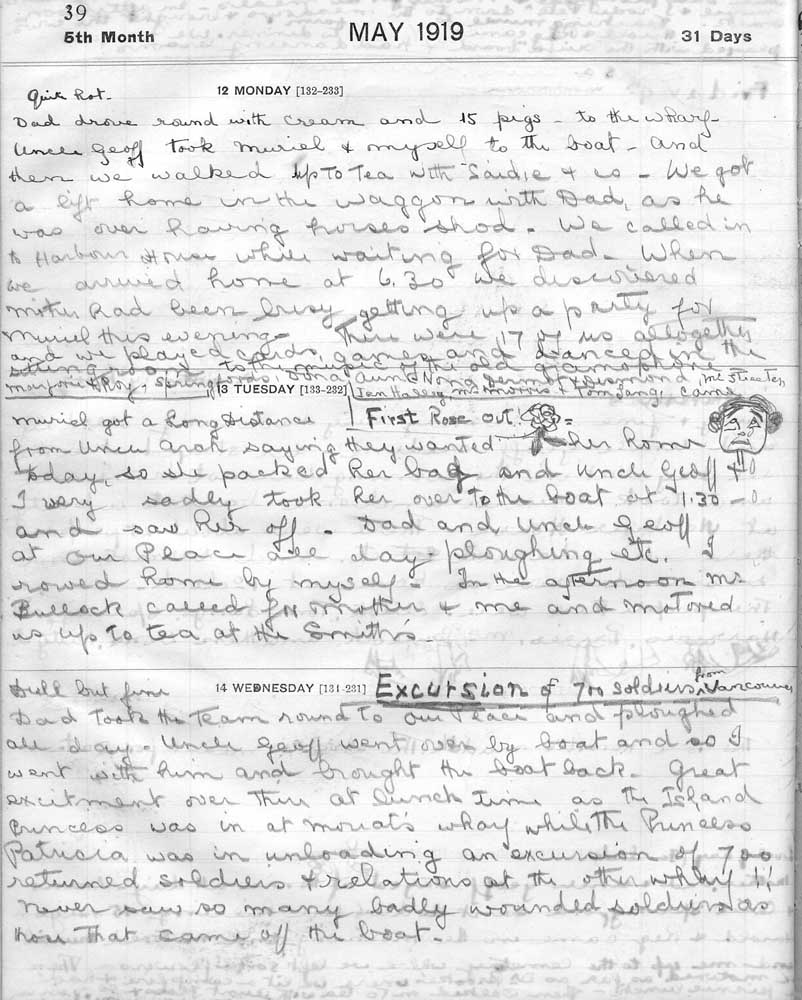 39
5th Month MAY 1919 31 Days
Quite Hot. 12 MONDAY [132-233]
Dad drove round with cream and 15 pigs - to the wharf
Uncle Geoff took Muriel & myself to the boat - and
then we walked up to Tea with Saidie & co - We got
a lift home in the waggon with Dad, as he
was over having horses shod. We called in
to Harbour House while waiting for Dad. When
we arrived home at 6.30 we discovered
mother had been busy getting up a party for
Muriel this evening - There were 17 of us altogether
and we played cards, games and danced in the
sitting room to the music of the old gramophone
Marjorie & Roy, Springfords, Dona Aunt Nona, Dermot & Desmond, Mr Streeten
13 TUESDAY [133-232] Mr Morris & Tom Lang, came
Muriel got a Long Distance First Rose out.
from Uncle Arch saying they wanted her home
today, so she packed her bag and Uncle Geoff &
I very sadly took her over to the boat at 1.30 -
and saw her off. Dad and Uncle Geoff
at our Peace all day - ploughing etc. I
rowed home by myself - In the afternoon Mr
Bullock called for mother & me and motored
us up to tea at the Smith's.
Dull but fine 14 WEDNESDAY [131-231] Excursion of 700 soldiers from Vancouver
Dad took the team round to our Peace and ploughed
all day. Uncle Geoff went over by boat and so I
went with him and brought the boat back. Great
excitment over there at lunch time as the Island
Princess was in at Mouat's wharf while the Princess
Patricia was in unloading an excursion of 700
returned soldiers & relations at the other wharf !!
Never saw so many badly wounded soldiers as
those that came off the boat.